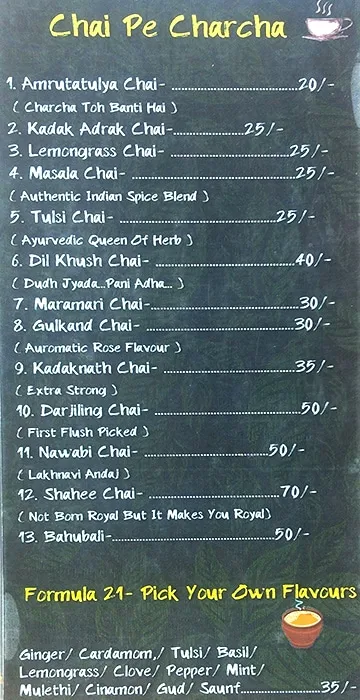 Chai Pe Charcha
1. Amrutatulya Chai- ................................20/-
( Charcha Toh Banti Hai )
2. Kadak Adrak Chai-..................25/-
3. Lemongrass Chai- ..............................25/-
4. Masala Chai- .........................................25/-
( Authentic Indian Spice Blend )
5. Tulsi Chai- ........................................25/-
( Ayurvedic Queen Of Herb )
6. Dil Khush Chai- ...................................40/-
( Dudh Jyada...Pani Adha... )
7. Maramari Chai-.....................................30/-
8. Gulkand Chai- .....................................30/-
( Auromatic Rose Flavour )
9. Kadaknath Chai- .................................35/-
( Extra Strong )
10. Darjiling Chai- ......................................50/-
( First Flush Picked )
11. Nawabi Chai- ...............................50/-
( Lakhnavi Andaj )
12. Shahee Chai- .................................70/-
( Not Born Royal But It Makes You Royal)
13. Bahubali-.........................................50/-
Formula 21- Pick Your Own Flavours
Ginger/ Cardamom,/ Tulsi/ Basil/
Lemongrass/ Clove/ Pepper/ Mint/
Mulethi/ Cinamon/ Gud/ Saunf....................35/-